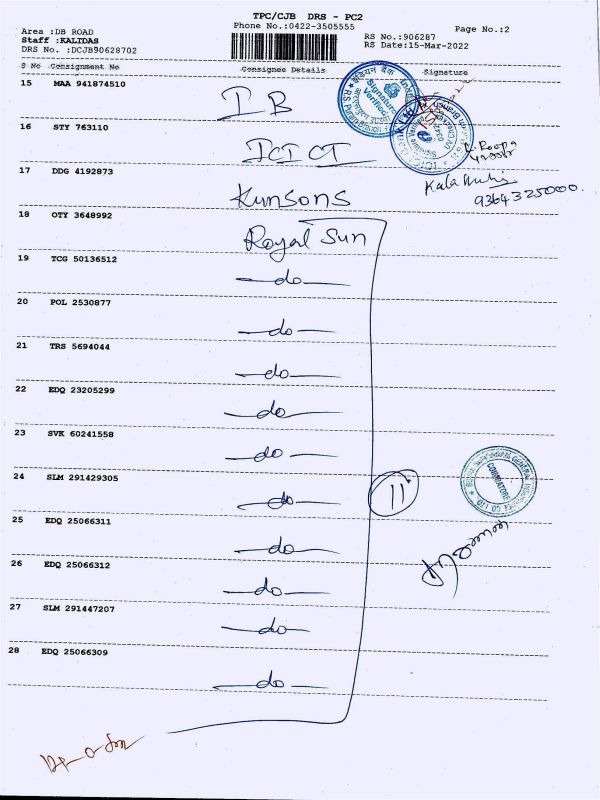 TPC/CJB DRS - PC2
Phone No.:0422-3505555
Page No.:2
Area :DB ROAD
Staff :KALIDAS
DRS No. :DCJB90628702
RS No.:906287
RS Date:15-Mar-2022
S No Consignment No Consignee Details Signature
15 MAA 941874510 IB
16 STY 763110 ICICI
17 DDG 4192873 Kunsons
9364325000.
18 OTY 3648992 Royal Sun
19 TCG 50136512 do
20 POL 2530877 do
21 TRS 5694044 do
22 EDQ 23205299 do
23 SVK 60241558 do
24 SLM 291429305 do
11
COIMBATORE
25 EDQ 25066311 do
26 EDQ 25066312 do
27 SLM 291447207 do
28 EDQ 25066309 do